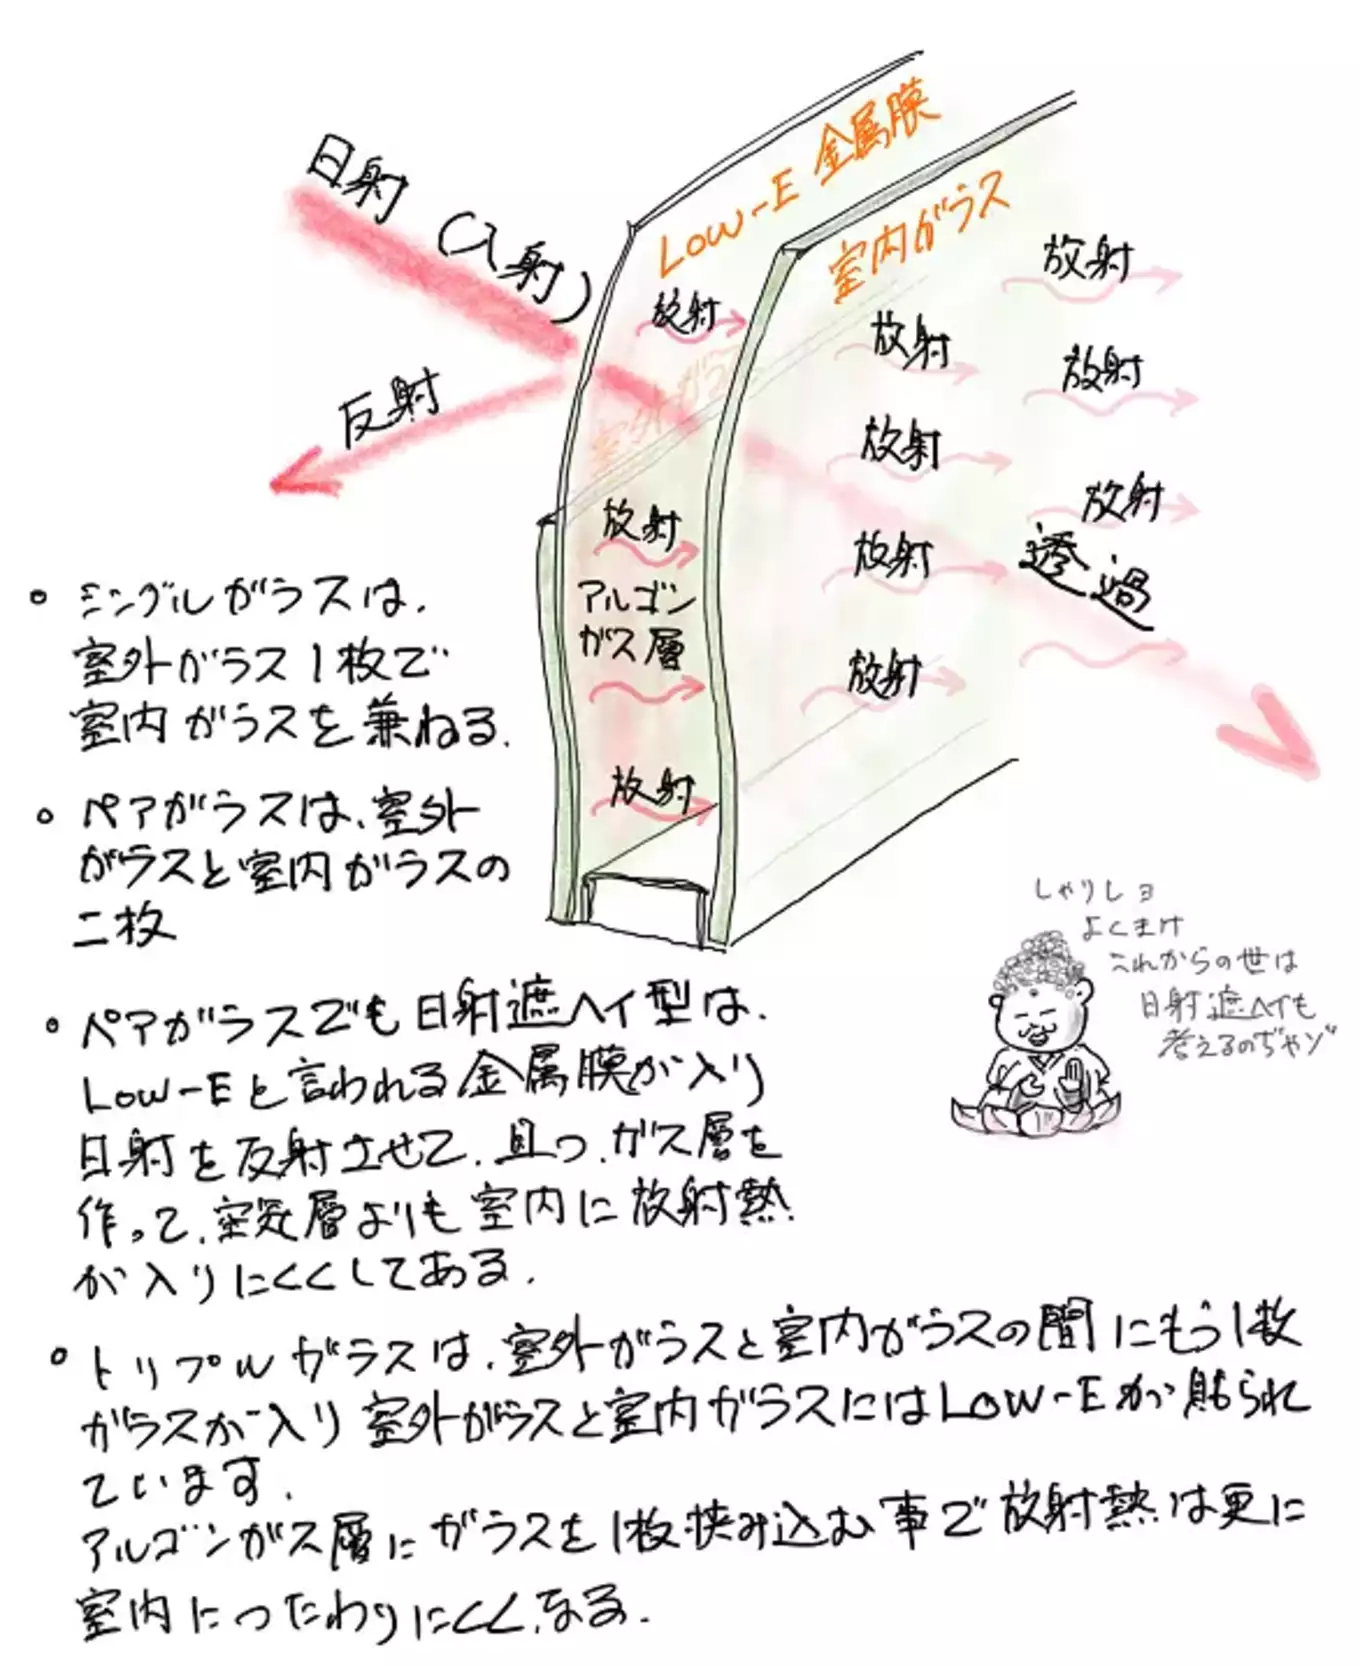 日射(入射)
反射
Low-E 金属膜
室内ガラス
室外ガラス
放射
放射
放射
放射
放射
放射
放射
アルゴン
ガス層
放射
放射
透過
放射
放射
・シングルガラスは、
室外ガラス1枚で
室内ガラスを兼ねる.
・ペアガラスは、室外
ガラスと室内ガラスの
二枚
・ペアガラスでも日射遮ヘイ型は、
Low-Eと言われる金属膜が入り
日射を反射させて、且つ、ガス層を
作って、空気層よりも室内に放射熱
が入りにくくしてある.
・トリプルガラスは、室外ガラスと室内ガラスの間にもう1枚
ガラスが入り室外ガラスと室内ガラスにはLow-Eが貼られ
ています.
アルゴンガス層にガラスを1枚挟み込む事で放射熱は更に
室内につたわりにくくなる.
しゃりしョ
よくまけ
これからの世は
日射遮ヘイも
考えるのぢゃゾ